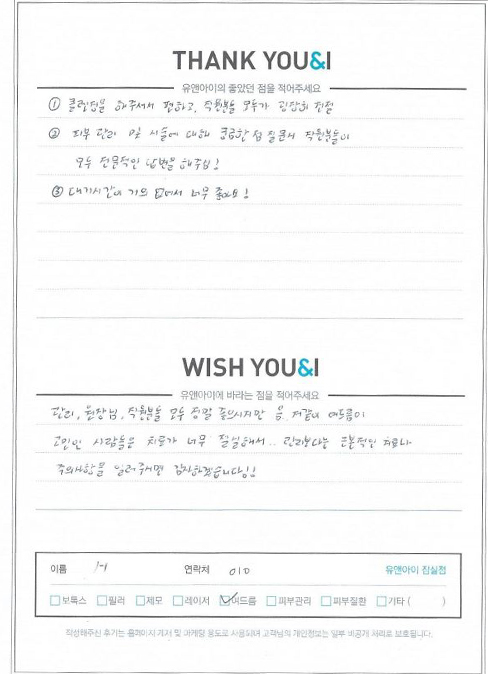 THANK YOU&I
유앤아이의 좋았던 점을 적어주세요
① 클렌징을 해주셔서 편하고, 직원분들 모두가 굉장히 친절
② 피부 관리 및 시술에 대해 궁금한 점 질문시 직원분들이
모두 전문적인 답변을 해주심!
③ 대기시간이 거의 없어서 너무 좋아요!
WISH YOU&I
유앤아이에 바라는 점을 적어주세요
관리, 원장님, 직원분들 모두 정말 좋으시지만 음 저같이 여드름이
고민인 사람들은 치료가 너무 절실해서.. 관리보다는 근본적인 치료나
주의사항을 알려주시면 감사하겠습니다!!
이름 연락처 010 유앤아이 잠실점
보톡스 필러 제모 레이저 여드름 피부관리 피부질환 기타 ( )
작성해주신 후기는 홈페이지 게재 및 마케팅 용도로 사용되며 고객님의 개인정보는 일부 비공개 처리로 보호됩니다.